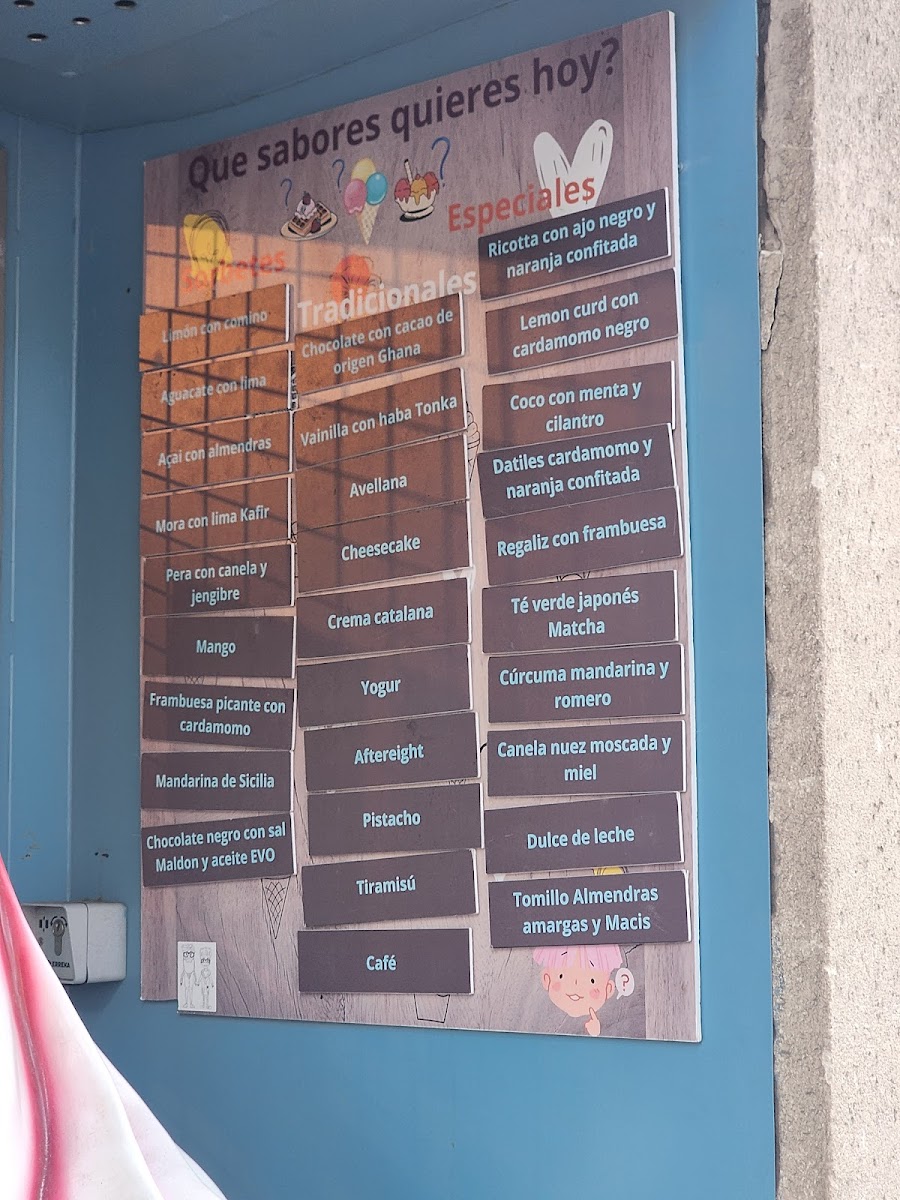 Que sabores quieres hoy?
Sorbetes
Limón con comino
Aguacate con lima
Açai con almendras
Mora con lima Kafir
Pera con canela y
jengibre
Mango
Frambuesa picante con
cardamomo
Mandarina de Sicilia
Chocolate negro con sal
Maldon y aceite EVO
Tradicionales
Chocolate con cacao de
origen Ghana
Vainilla con haba Tonka
Avellana
Cheesecake
Crema catalana
Yogur
Aftereight
Pistacho
Tiramisú
Café
Especiales
Ricotta con ajo negro y
naranja confitada
Lemon curd con
cardamomo negro
Coco con menta y
cilantro
Datiles cardamomo y
naranja confitada
Regaliz con frambuesa
Té verde japonés
Matcha
Cúrcuma mandarina y
romero
Canela nuez moscada y
miel
Dulce de leche
Tomillo Almendras
amargas y Macis
?